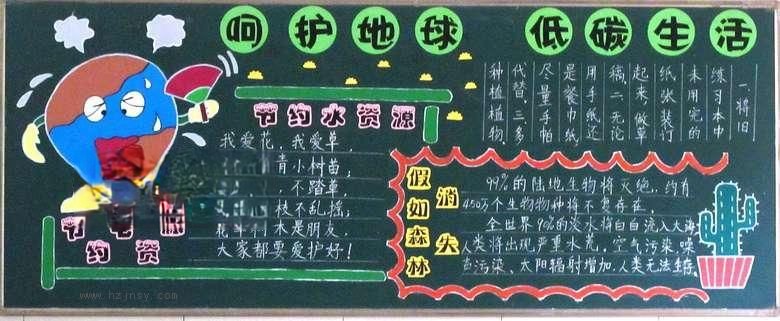 呵护地球 低碳生活
节约水资源
我爱花,我爱草,
青小树苗;
不踏草,
枝不乱摇;
木是朋友,
大家都要爱护好!
节约资
一.将旧
练习本中
未用完的
纸张装订
起来,做草
稿.二.无论
用手纸还
是餐巾纸,
尽量手帕
代替.三.多
种植植物.
假如森林
消失
99%的陆地生物将灭绝,约有
450万个生物物种将不复存在.
全世界90%的淡水将白白流入大海
人类将出现严重水荒,空气污染,噪
音污染、太阳辐射增加.人类无法生存.
www.hzjnsy.com